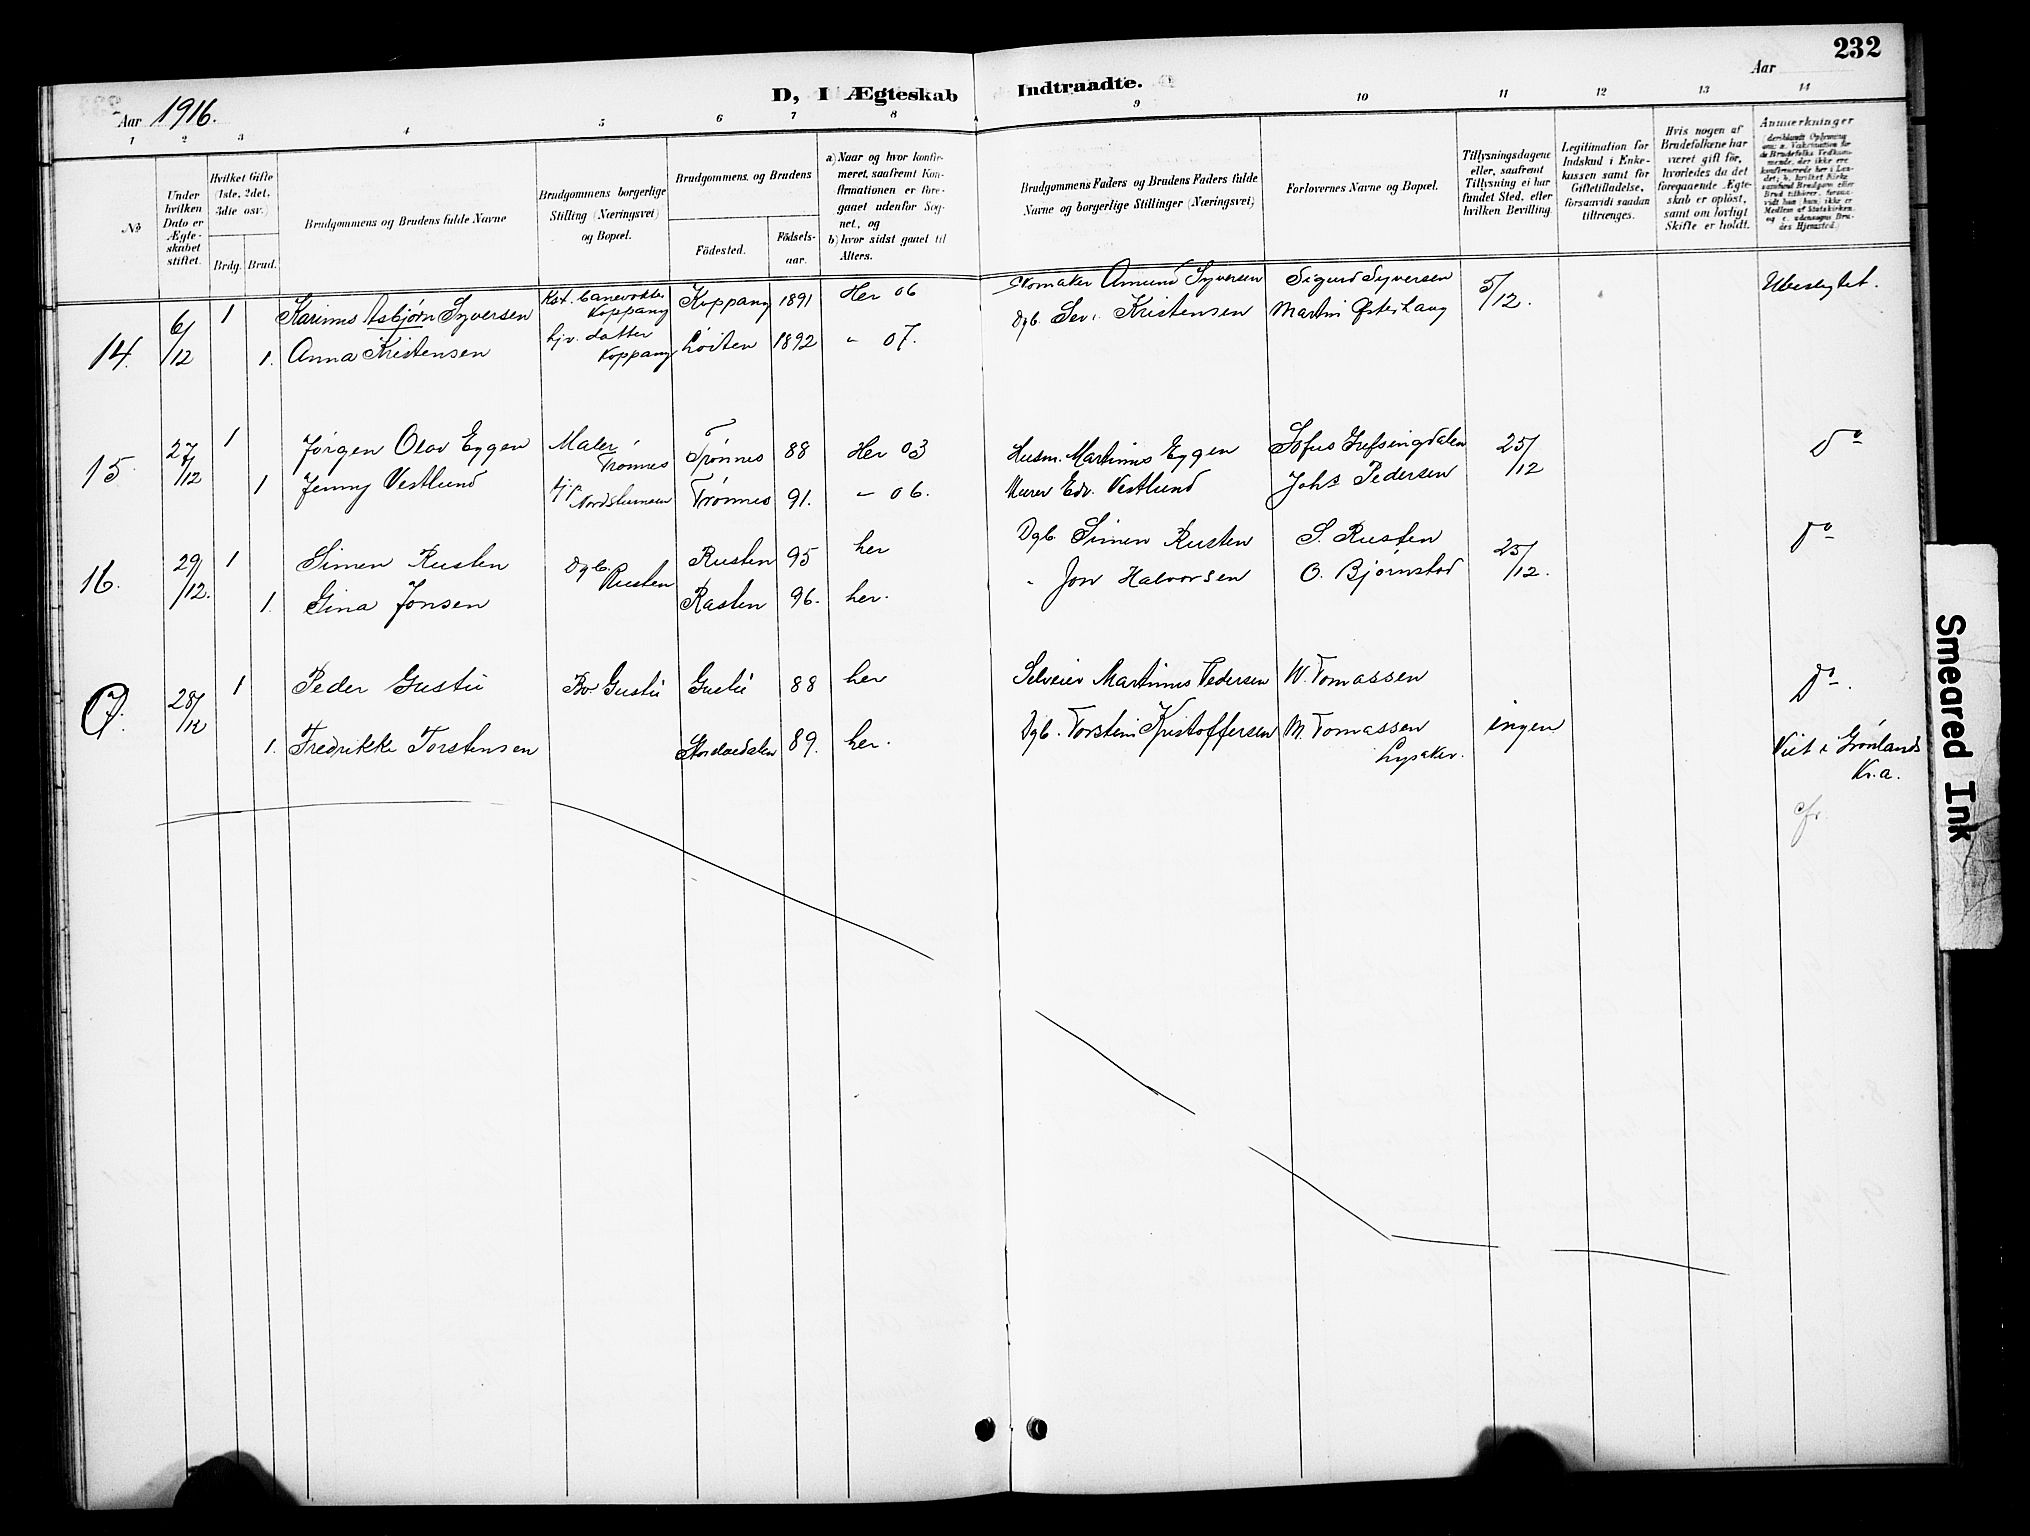 232
D, I Ægteskab Indtraadte.
Aar 1916.
Aar
1 2 3 4 5 6 7 8 9 10 11 12 13 14
№
Under hvilken Dato er Ægteskabet stiftet.
Hvilket Gifte (1ste, 2det, 3die osv.)
Brdg. Brud.
Brudgommens og Brudens fulde Navne
Brudgommens borgerlige Stilling (Næringsvei) og Bopæl.
Brudgommens og Brudens
Födested.
Födsels-aar.
a) Naar og hvor konfirmeret, saafremt Konfirmationen er foregaaet udenfor Sognet, og
b) hvor sidst gaaet til Alters.
Brudgommens Faders og Brudens Faders fulde Navne og borgerlige Stillinger (Næringsvei)
Forlovernes Navne og Bopæl.
Tillysningsdagene eller, saafremt Tillysning ei har fundet Sted, efter hvilken Bevilling.
Legitimation for Indskud i Enkekassen samt for Giftetilladelse, forsaavidt saadan tiltrænges.
Hvis nogen af Brudefolkene har været gift för, hvorledes da det foregaaende Ægteskab er oplöst, samt om lovligt Skifte er holdt.
Anmerkninger
14. 6/12 1 Karinus Asbjørn Syversen Koppang Koppang 1891 Her 06 Skomaker Amund Syversen Sigurd Syversen 5/12. Ubeslegtet.
1. Anna Kristensen hjv. datter Koppang Løiten 1892 " 07. Dgb. Kristensen Martin Østerhaug
15. 27/12 1 Jørgen Olav Eggen Maler Trønnes Trønnes 88 Her 03 Husm. Martinus Eggen Sofus Grefsingdalen 25/12 Do
1 Jenny Vestlund Trønnes 91. " 06. Murer Edv. Vestlund Johs Pedersen
16. 29/12. 1 Simen Rusten Dgb. Rusten Rusten 95 her Dgb Simen Rusten S. Rusten 25/12. Do
1. Gina Jonsen Rasten 96. her. " Jon Halvorsen O. Bjørnstad
28/12 1 Peder Gustu Bo Gustu Gustu 88 her Selveier Martinus Pedersen W. Tomassen Do.
1. Fredrikke Torstensen 89. her. Dgb. Torstein Kristoffersen M. Tomassen Lysaker. ingen Viet i Grønlands Kr.a.
cfr.
Smeared Ink